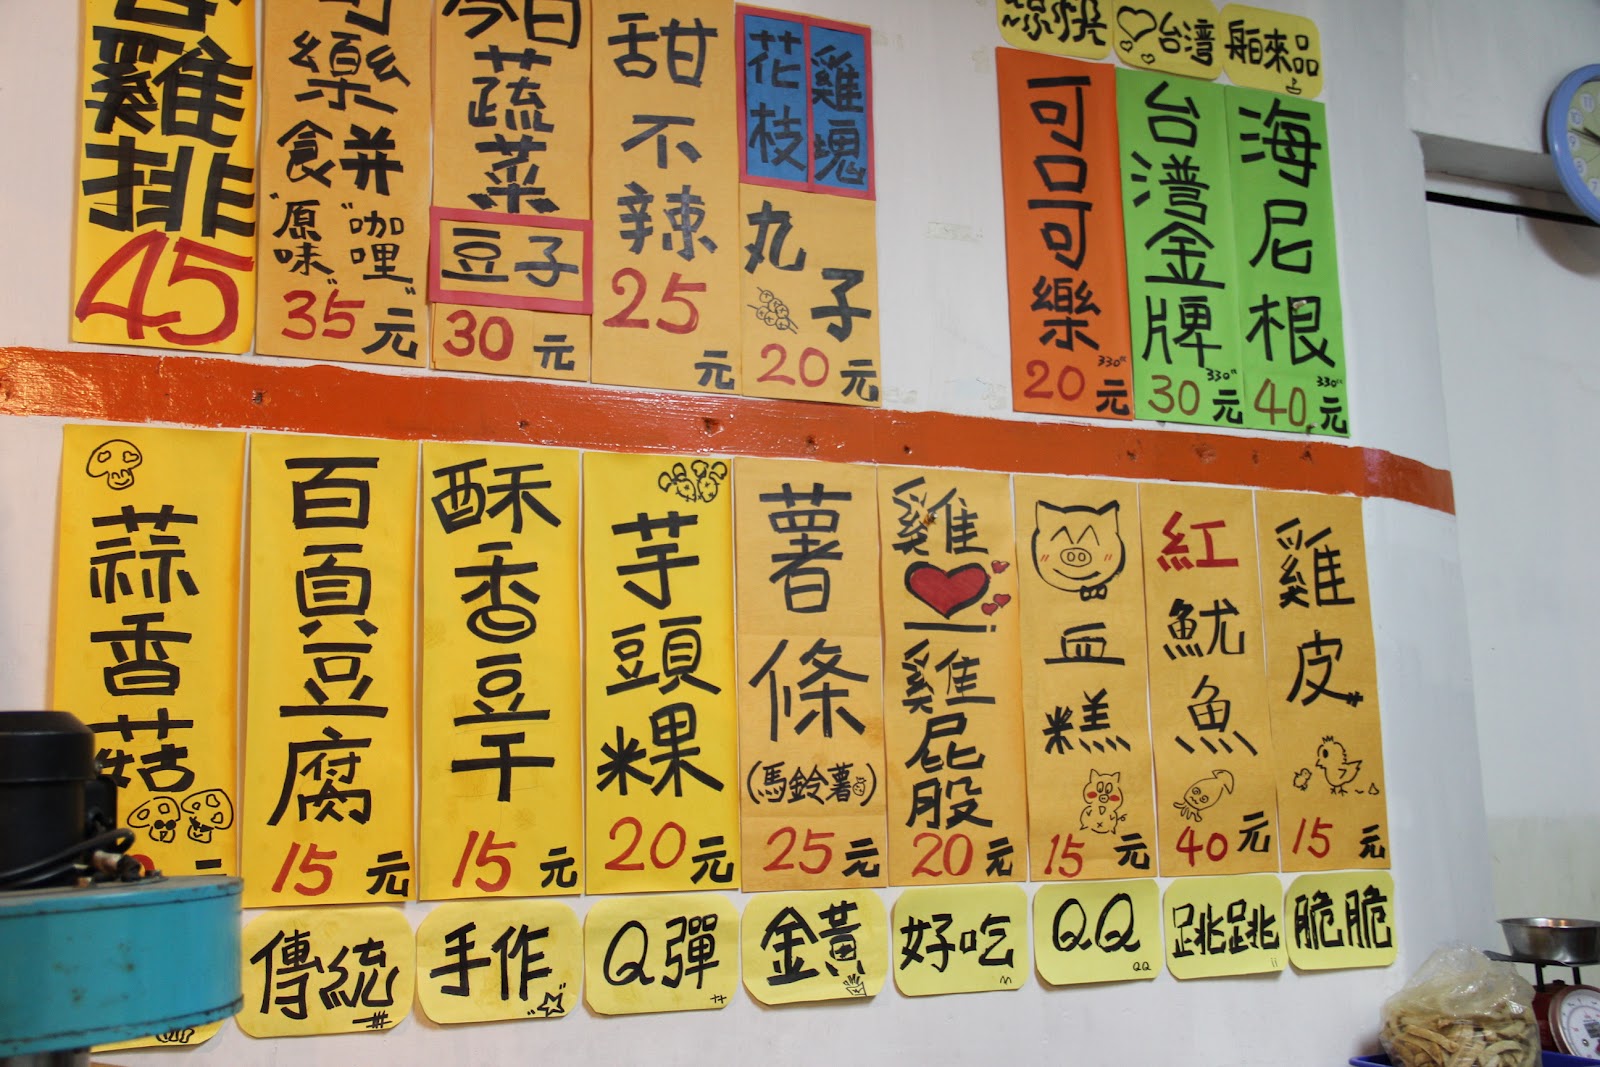 雞排
45
可樂餅
"原味"
"咖哩"
35元
今日蔬菜
豆子
30元
甜不辣
25元
花枝
雞塊
丸子
20元
涼快
可口可樂
330cc
20元
台灣
台灣金牌
330cc
30元
舶來品
海尼根
330cc
40元
蒜香菇
元
百頁豆腐
15元
傳統
酥香豆干
15元
手作
芋頭粿
20元
Q彈
薯條
(馬鈴薯)
25元
金黃
雞
雞屁股
20元
好吃
血糕
15元
QQ
QQ
紅魷魚
40元
跳跳
雞皮
15元
脆脆